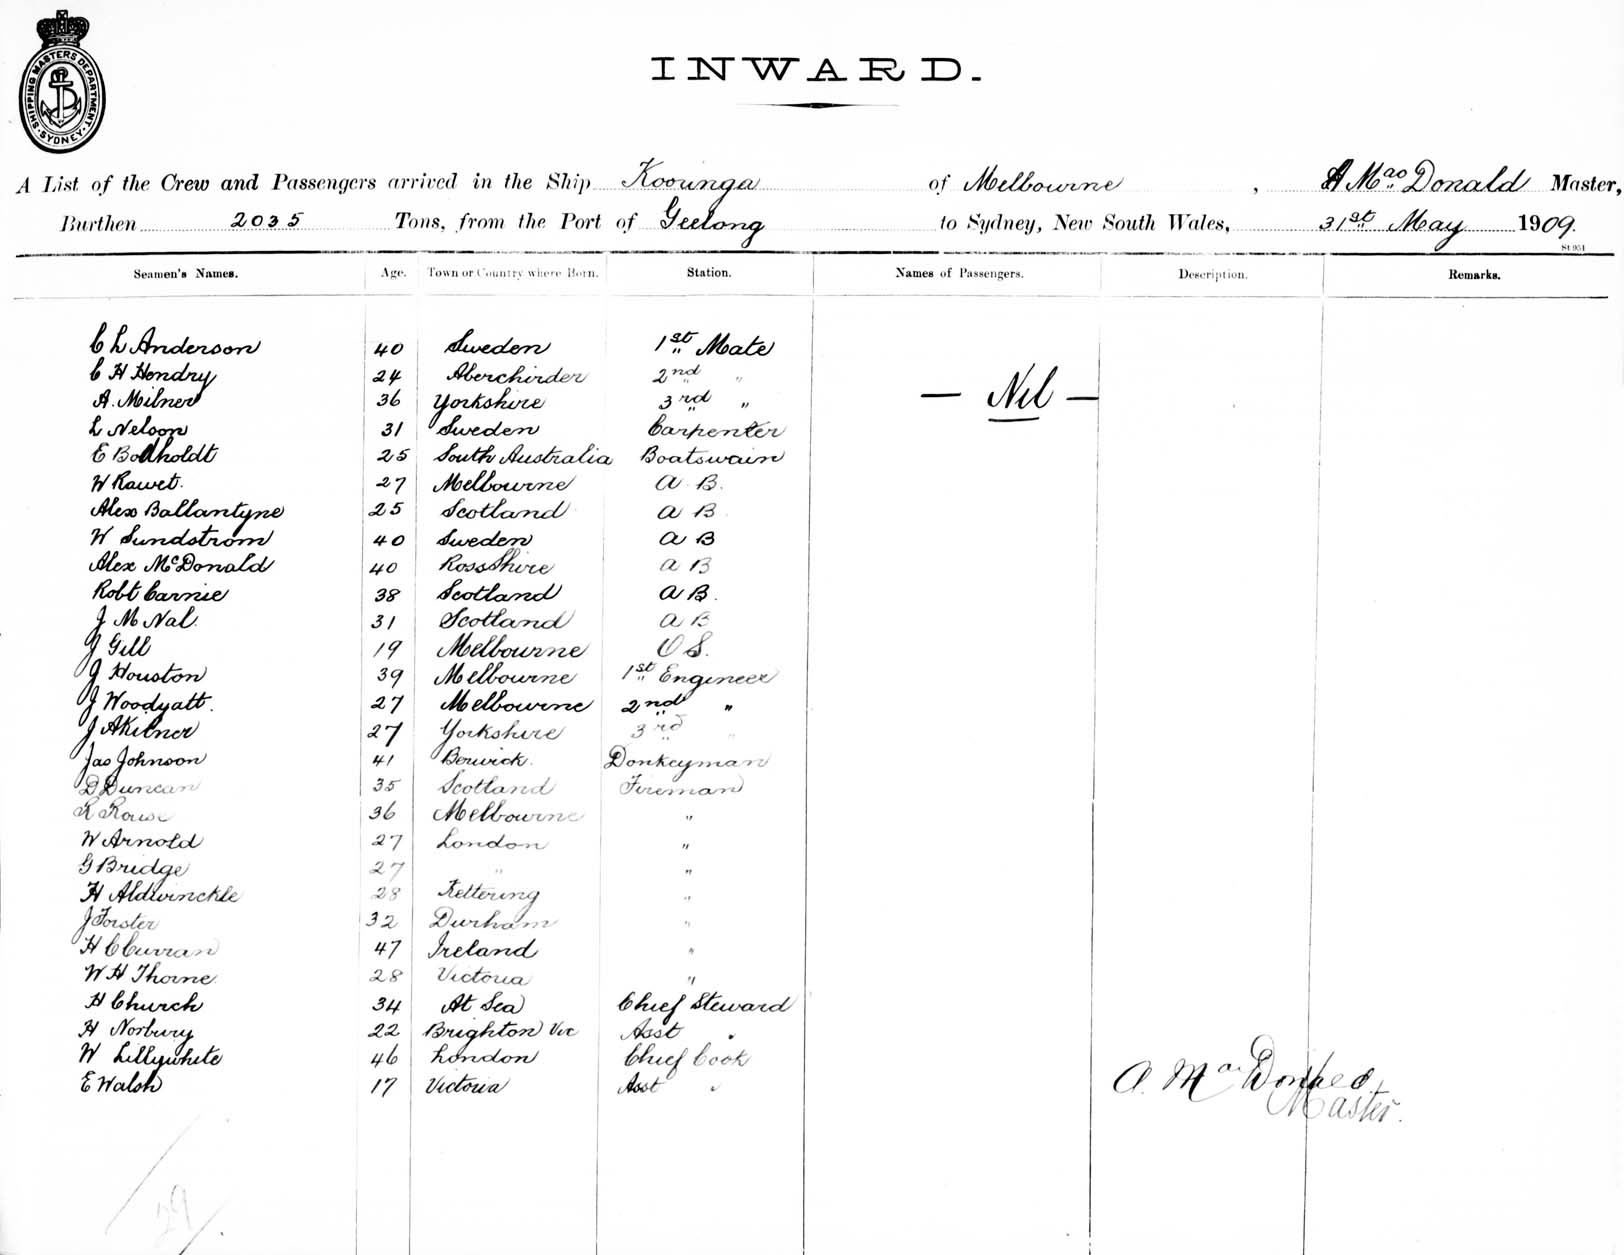 SHIPPING MASTERS DEPARTMENT
SYDNEY
INWARD.
A List of the Crew and Passengers arrived in the Ship Koounga of Melbourne, A MacDonald Master,
Burthen 2035 Tons, from the Port of Geelong to Sydney, New South Wales, 31st May 1909.
St 951
Seamen's Names. Age. Town or Country where Born. Station. Names of Passengers. Description. Remarks.
C L Anderson 40 Sweden 1st Mate
C H Hendry 24 Aberchirder 2nd "
— Nil —
A. Milner 36 Yorkshire 3rd "
L Nelson 31 Sweden Carpenter
E Bodholdt 25 South Australia Boatswain
W Rawet. 27 Melbourne A B.
Alex Ballantyne 25 Scotland A B
W Sundstrom 40 Sweden A B
Alex McDonald 40 Ross Shire A B
Robt Carnie 38 Scotland A B.
J M Nal. 31 Scotland A B
J Gill 19 Melbourne O S.
J Houston 39 Melbourne 1st Engineer
J Woodyatt. 27 Melbourne 2nd "
J A Kilner 27 Yorkshire 3rd "
Jas Johnson 41 Berwick. Donkeyman
D Duncan 35 Scotland Fireman
R Rouse 36 Melbourne "
W Arnold 27 London "
G Bridge 27 " "
H Aldwinckle 28 Kettering "
J Forster 32 Durham "
H C Curran 47 Ireland "
W H Thorne 28 Victoria "
H Church 34 At Sea Chief Steward
H Norbury 22 Brighton Vic Asst "
W Lillywhite 46 London Chief Cook
E Walsh 17 Victoria Asst "
A. MacDonald
Master.
29